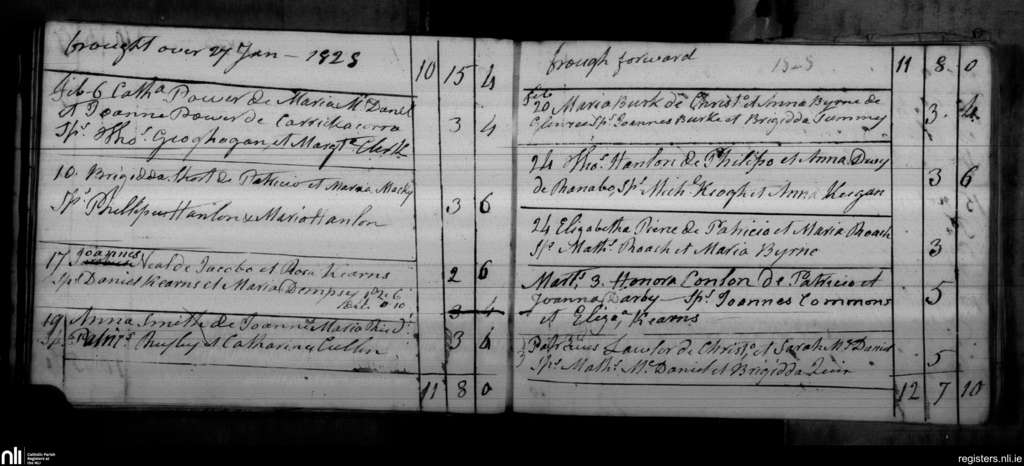 brought over 27 Jan - 1828 10 15 4
Feb 6 Catha Power de Maria McDaniel
et Joanne Power de Carrick 3 4
Sps Thos Geoghogan et Margt Clerk
10. Brigidda de Patricio et Maria Macky
Sps Phillipus Hanlon & Maria Hanlon 3 6
Joannes
17 Neal de Jacobo et Rosa Kearns
Sps Daniel Kearns et Maria Dempsey 2 6
3 4
19 Anna Smith de Joanne Maria
Sps Patrics Rugby et Catharina Cullen 3 4
11 8 0
brough forward 1828 11 8 0
Feb
20 Maria Burk de Christo et Anna Byrne de 3 4
Sps Joannes Burke et Brigidda Tummey
24 Thos Hanlon de Philipo et Anna
de Ranabo, Sps Michl Keogh et Anna Keegan 3 6
24 Elizabetha Peirie de Patricio et Maria Roach
Sps Maths Roach et Maria Byrne 3
Marts 3. Honora Conlon de Patricio et
Joanna Darby Sps Joannes Commons 5
et Eliza Kearns
3 Patricius Lawlor de Christo et Sarah McDaniel
Sps Maths McDaniel et Brigidda Quin 5
12 7 10
nli Catholic Parish Registers at the NLI
registers.nli.ie